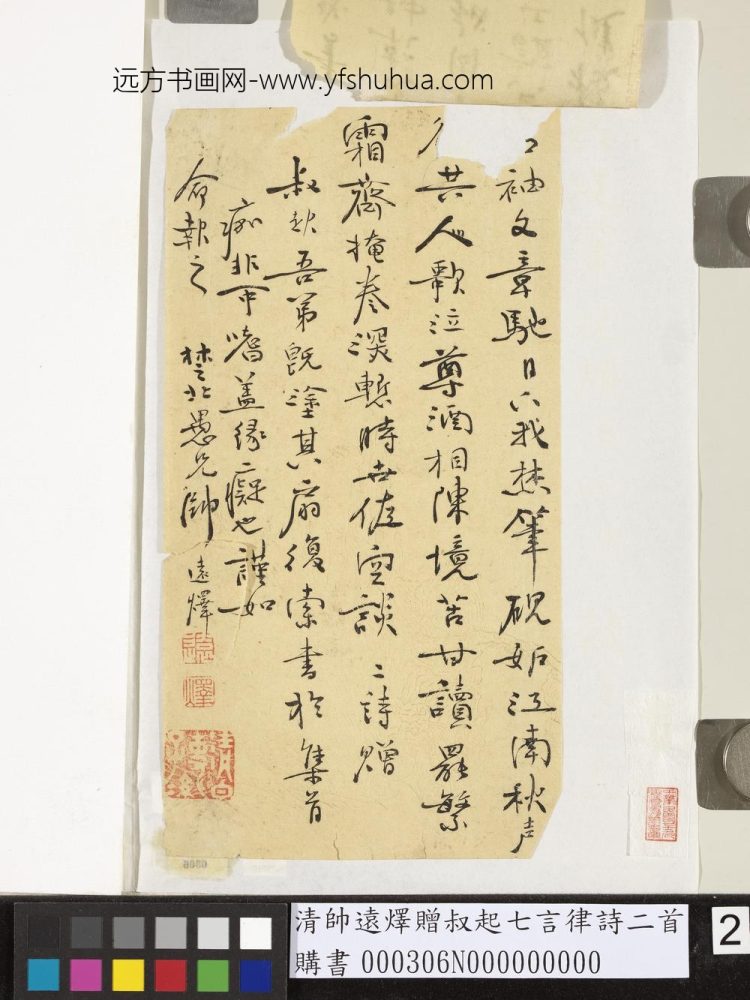 远方书画网-www.yfshuhua.com
袖文章馳日下我焚筆硯妬江南秋声
共人歌泣尊酒相陳境苦甘讀罷繁
霜齋掩卷深慙時世佐空談 二詩贈
叔起吾弟既塗其扇復索書於集首
痂非可嗜蓋緣癡也謹如
命報之 楚北愚兄帥遠燡
遠燡
清帥遠燡贈叔起七言律詩二首
購書 000306N000000000
2